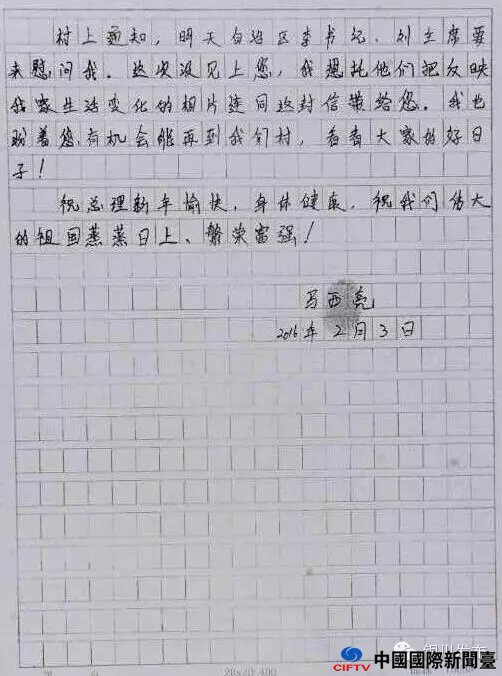 村上通知，明天自治区李书记、刘主席要
来慰问我。这次没见上您，我想托他们把反映
我家生活变化的相片连同这封信带给您。我也
盼着您有机会能再到我们村，看看大家的好日
子！
祝总理新年愉快，身体健康，祝我们伟大
的祖国蒸蒸日上、繁荣富强！
马西亮
2016年2月3日
20×20=400
银川发布
CIFTV 中國國際新聞臺